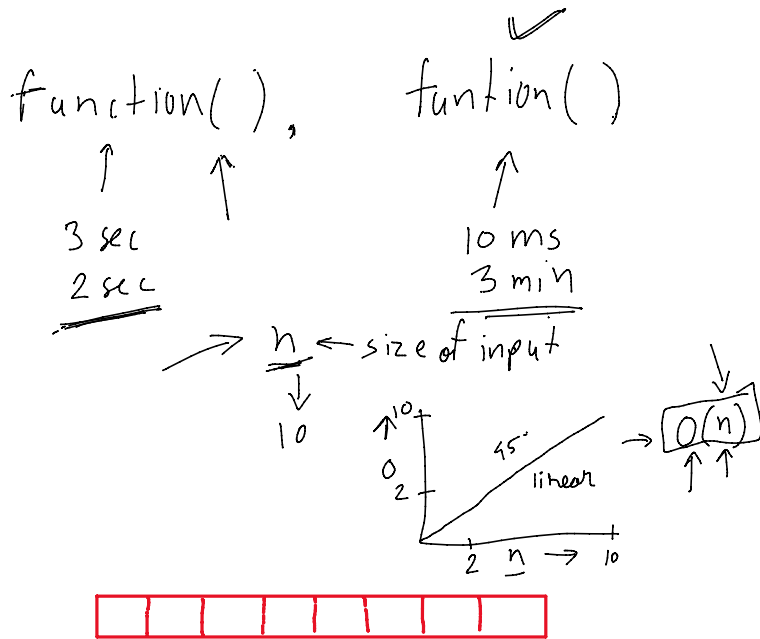 function().
funtion()
3 sec
2 sec
10 ms
3 min
n ← size of input
10
10
O
2
45°
linear
2
n →
10
O(n)